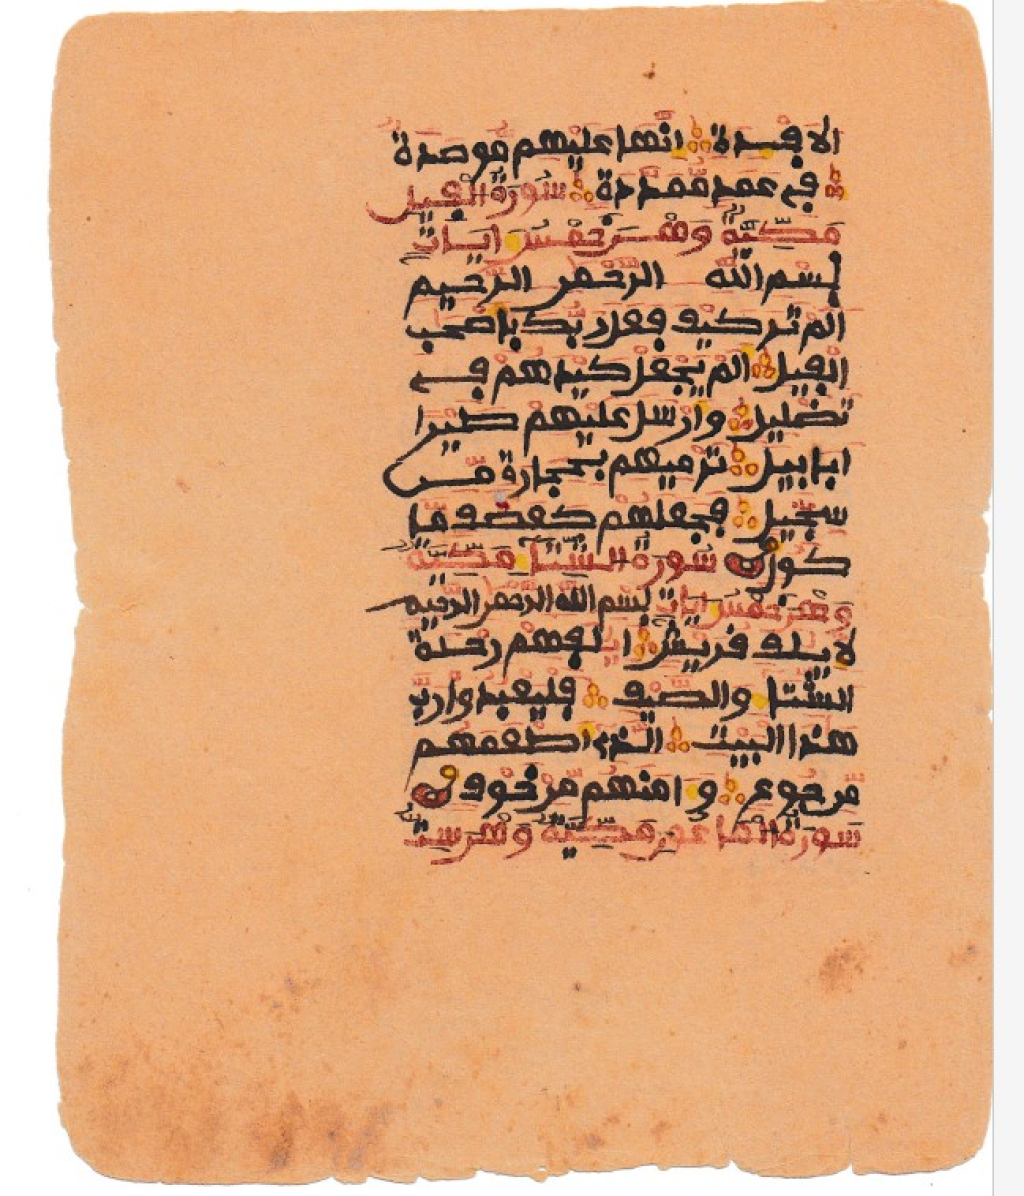 الافـدة انها عليهم موصدة
في عمد ممددة سورة الفيل
مكية وهي خمس ايات
بسم الله الرحمن الرحيم
الم تر كيف فعل ربك باصحب
الفيل الم يجعل كيدهم في
تضليل وارسل عليهم طيرا
ابابيل ترميهم بحجارة من
سجيل فجعلهم كعصف ما
كول سورة الشتا مكية
وهي خمس ايات بسم الله الرحمن الرحيم
لايلف قريش ا لفهم رحلة
الشتا والصيف فليعبدوا رب
هذا البيت الذي اطعمهم
من جوع و امنهم من خوف
سورة الماعون مكية وهي ست